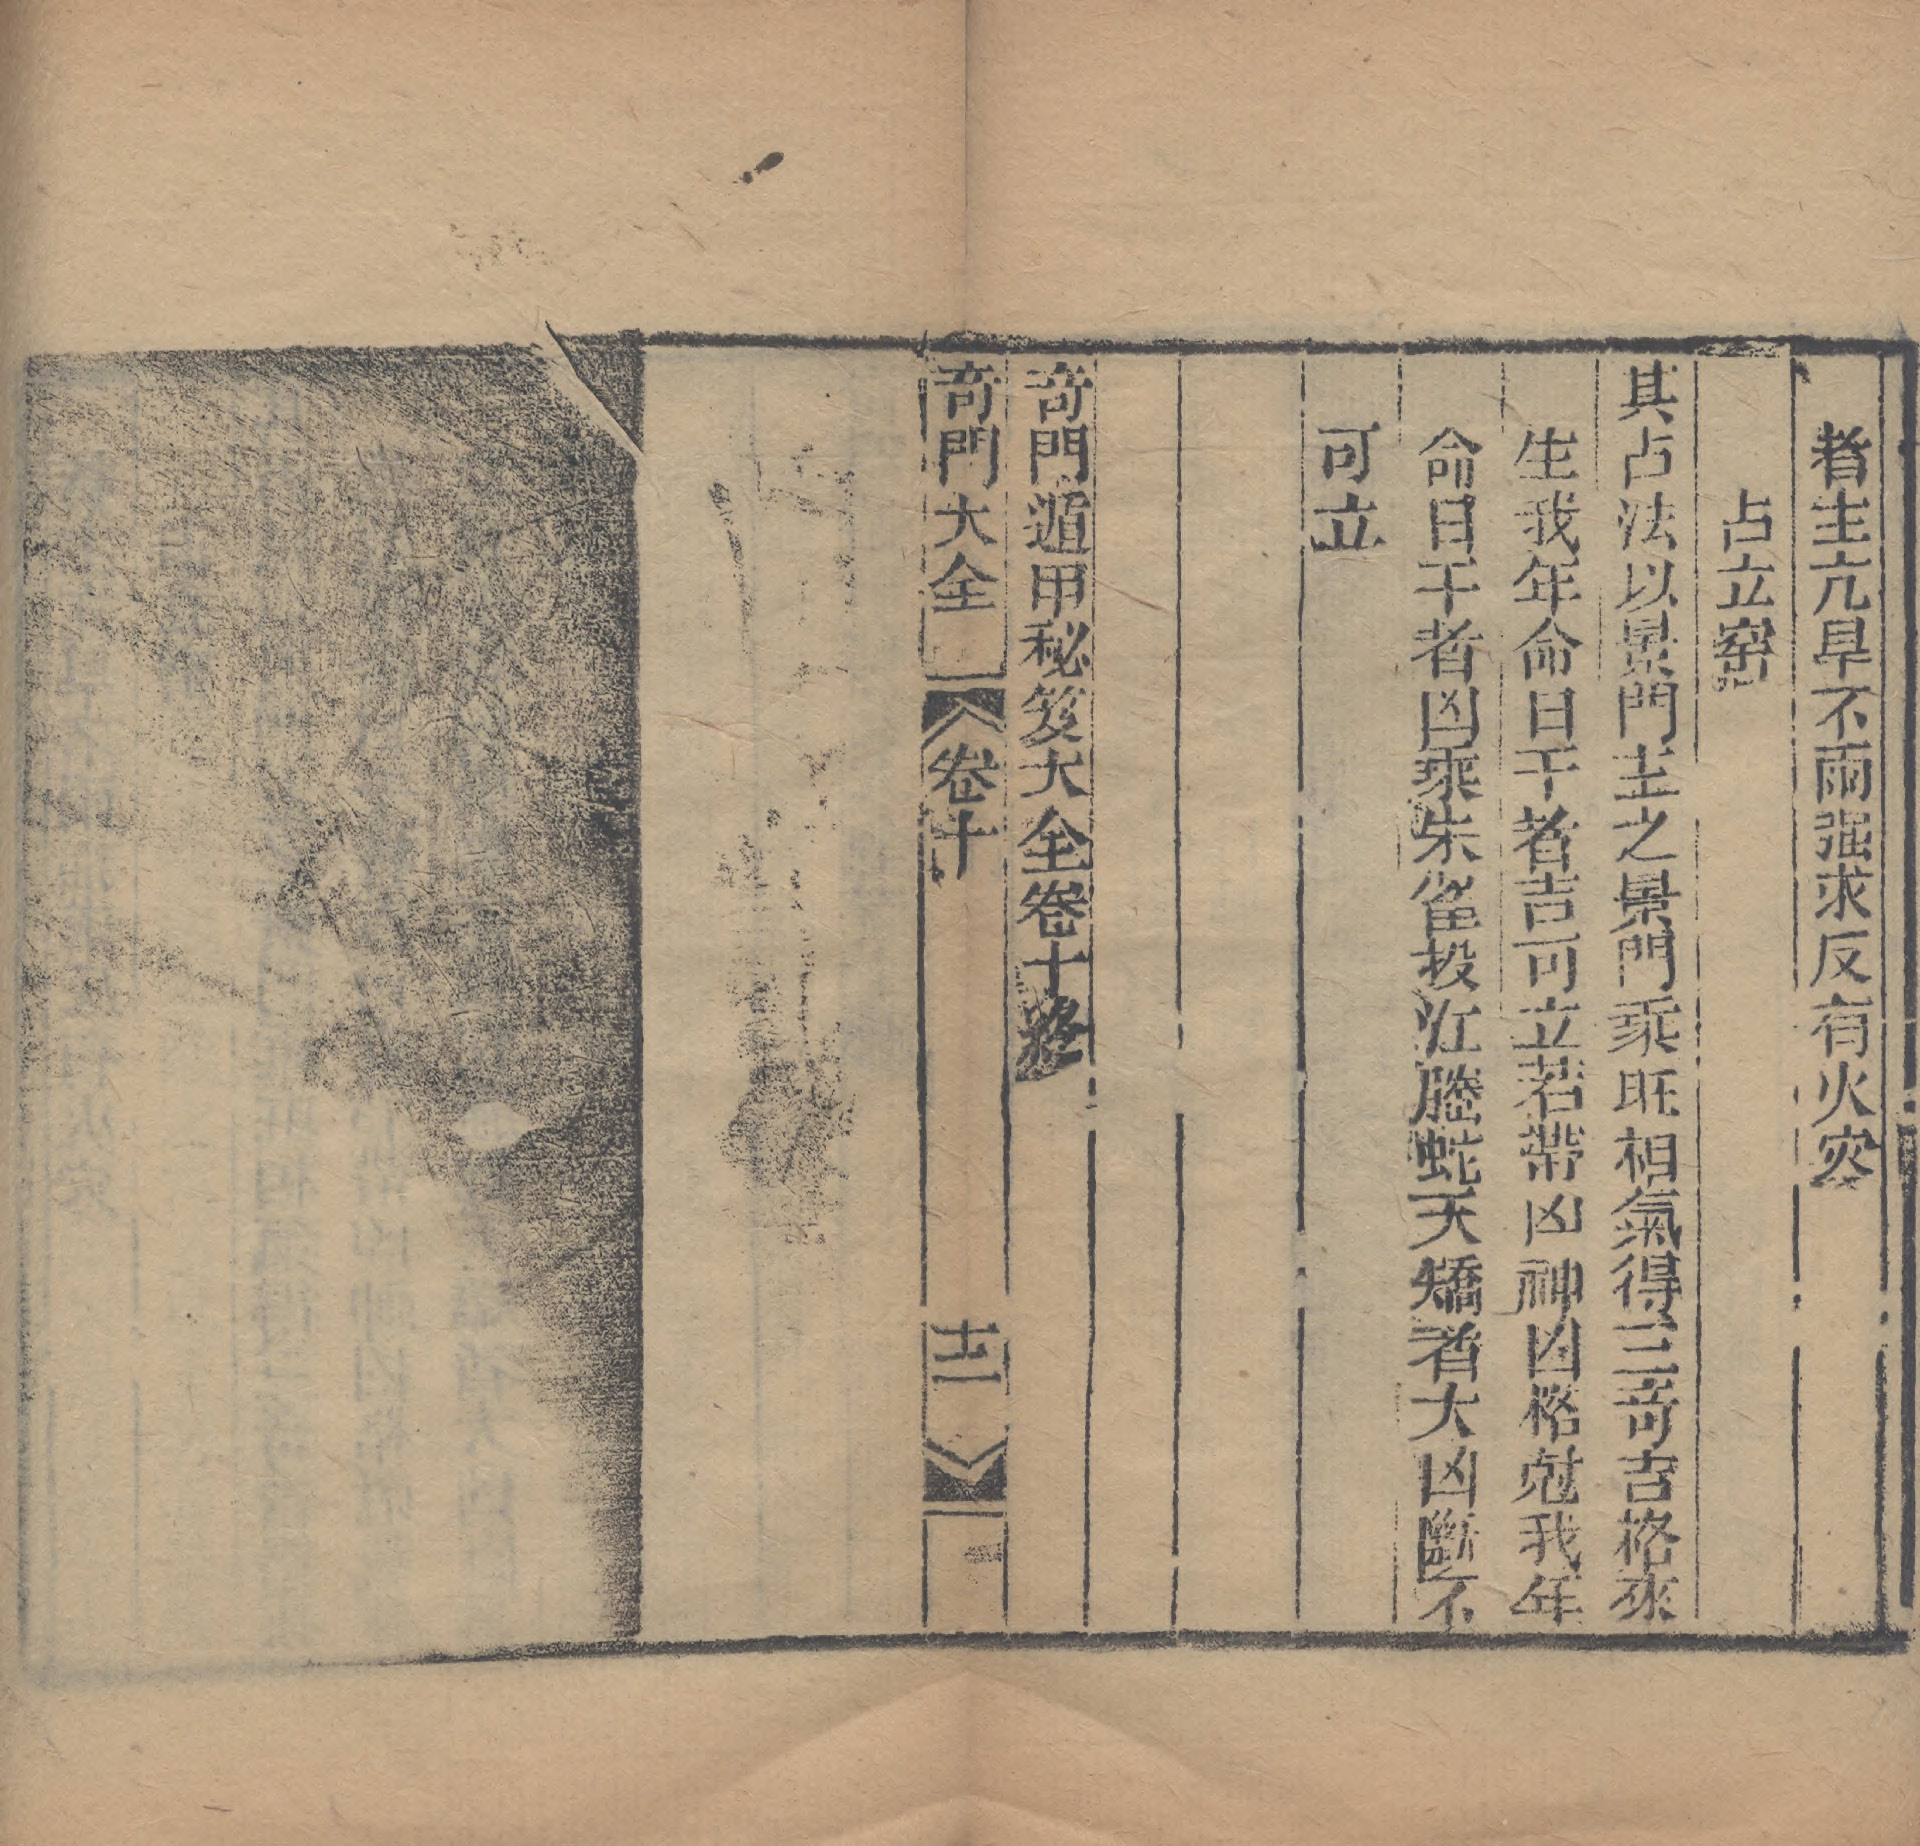 者主亢旱不雨强求反有火灾
占立窑
其占法以景門主之景門乘旺相氣得三奇吉格來
生我年命日干者吉可立若帶凶神凶格尅我年
命日干者凶乘朱雀投江螣蛇夭矯者大凶斷不
可立
奇門遁甲秘笈大全卷十終
奇門大全
卷十
十二